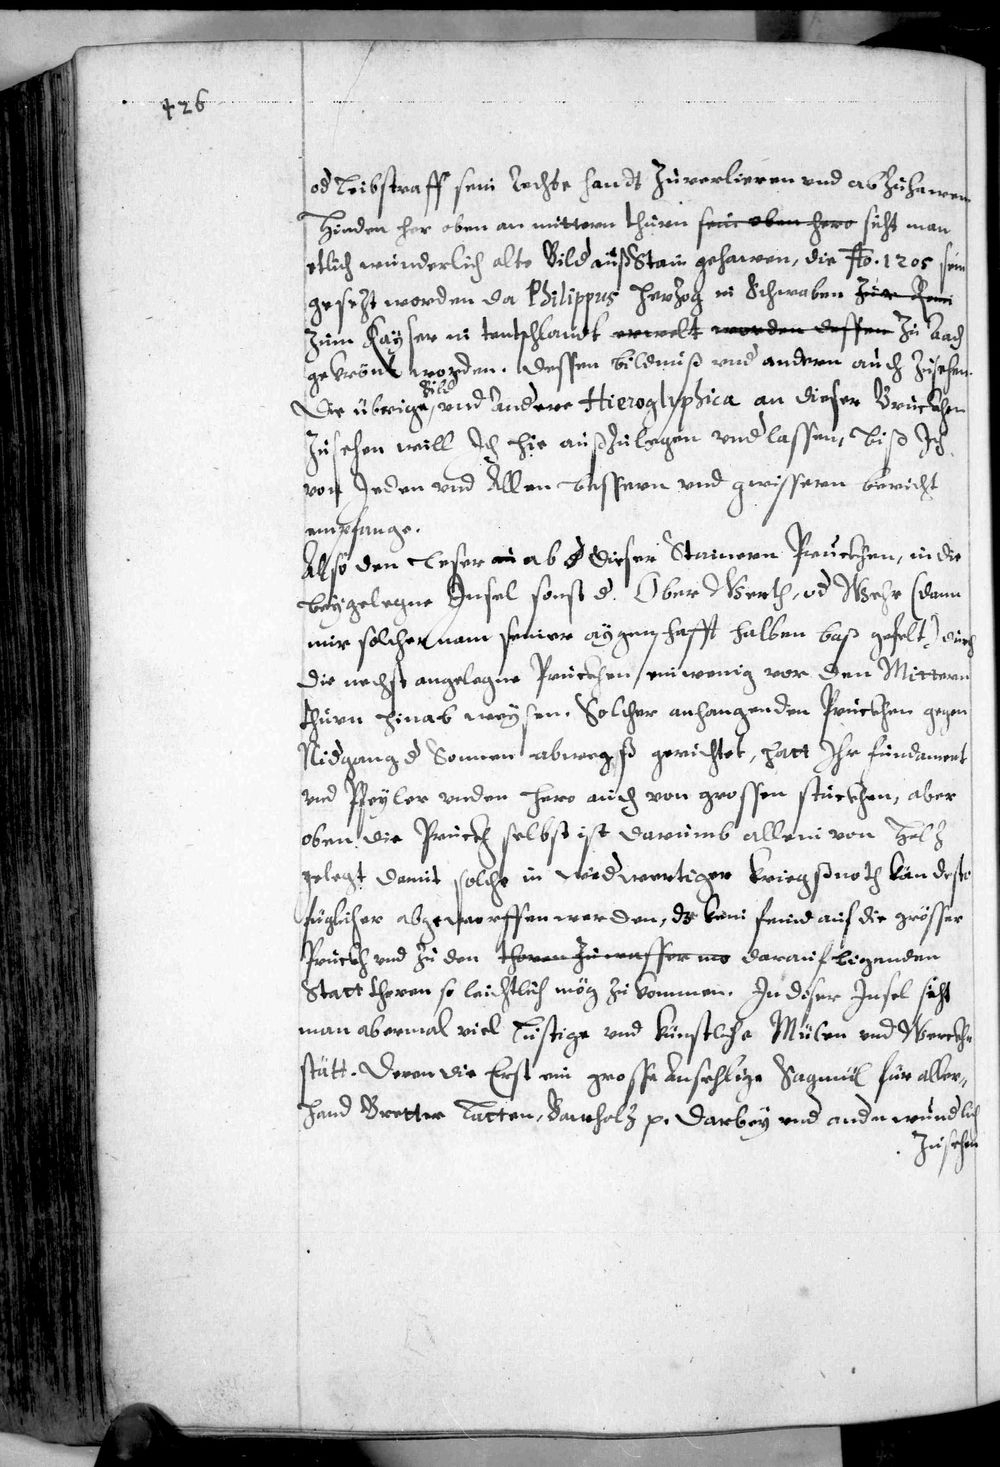 426
od Leibstraff sein rechte handt zuverlieren und abzuhawen
Hinden her oben an mittern thurn sein oben hero siht man
etlich wunderlich alte Bild auß Stain gehawen, die Ao. 1205 sein
gesezt worden da Philippus Herzog in Schwaben zum Röm
zum Kayser in teutschlandt erwelt worden dessen zu Aach
gekrönt worden. dessen bildnuß und andern auch zusehen.
Bild
Die übrige und andere Hieroglyphica an dieser Brucken
zusehen will Ich hie außzulegen underlassen, biß Ich
von Jeden und Allen bessern und gwissern bericht
empfange.
Also den Leser ab dieser Stainern Prucken, in die
beygelegne Insel sonst d. Ober Werth, od Wehr (dann
mir solcher nam seiner aygenschafft halben baß gefelt) durch
die nechst angelegne Prucken ein wenig vor den Mittern
thurn hinab weysen. Solcher anhangenden Prucken gegen
Nidgang d Sonnen abwegß gerichtet, hatt Ihr fundament
und Pfeyler unden hero auch von grossen stucken, aber
oben die Pruckh selbst ist darumb allein von Holz
gelegt damit solche in widwertiger kriegsnoth kan desto
füglicher abgeworffen werden, dz kein feind auf die grösser
Pruckh und zu den thoren zuwasser darauf ligenden
Statt thoren so leichtlich mög zukommen. In diser Insel siht
man abermal viel Lustige und künstliche Mülen und Werckh
stätt. Deren die Erst ein grosse ansehlige Sagmül für aller„
hand Bretter Latten, Bawholz p. darbey und andn wundlich
zusehen